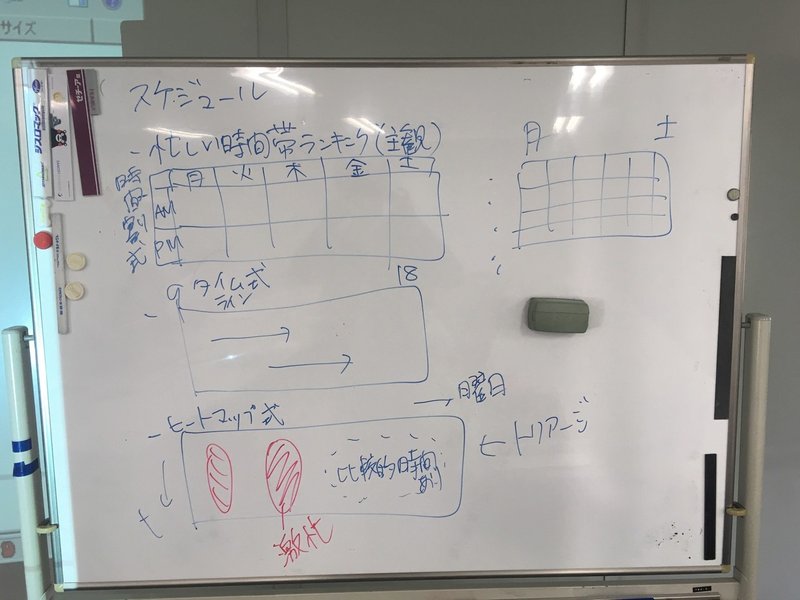 サイズ
スケジュール
- 忙しい時間帯ランキング(主観)
月 土
時間割式
月 火 木 金 土
AM
PM
9 タイムライン式 18
-
→ 曜日
- ヒートマップ式
← トリアージ
比較的時間あり
t
激忙